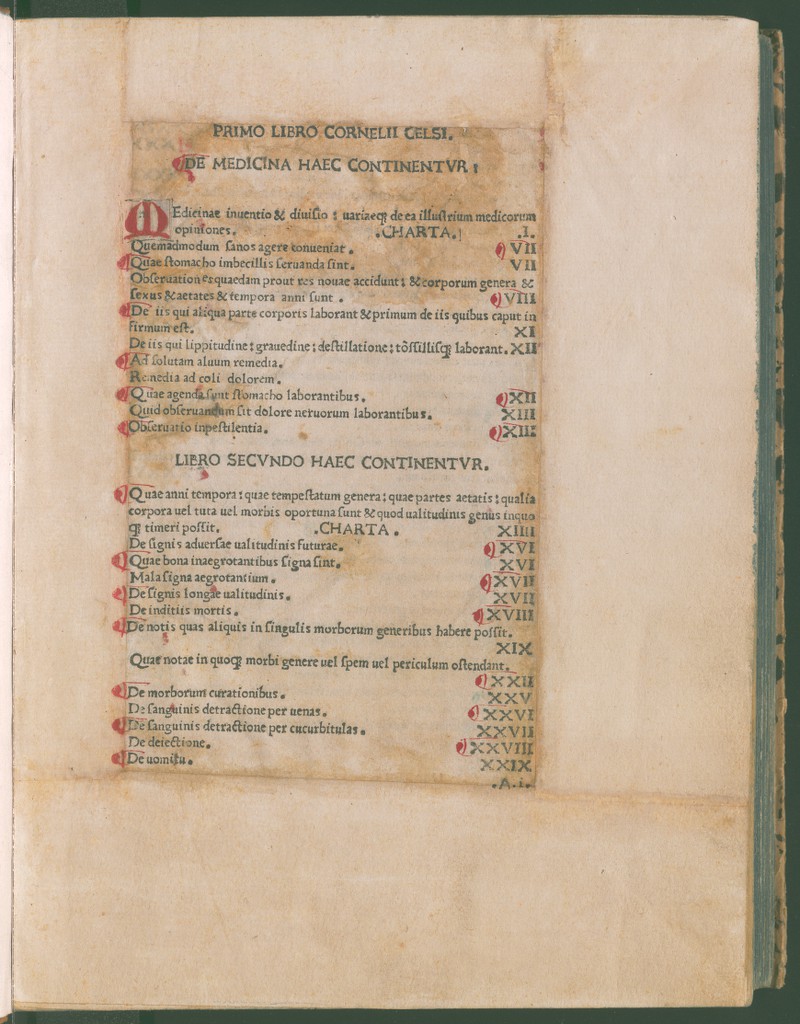 PRIMO LIBRO CORNELII CELSI.
DE MEDICINA HAEC CONTINENTVR :
MEdicinae inuentio & diuisio : uariaeq; de ea illustrium medicorum
opiniones. .CHARTA. .I.
Quemadmodum sanos agere conueniat. VII
Quae stomacho imbecillis seruanda sint. VII
Obseruationes quaedam prout res nouae accidunt: & corporum genera &
sexus & aetates & tempora anni sunt . VIII
De iis qui aliqua parte corporis laborant & primum de iis quibus caput in
firmum est. XI
De iis qui lippitudine: grauedine: destillatione: tōssillisq; laborant. XII
Ad solutam aluum remedia.
Remedia ad coli dolorem.
Quae agenda sunt stomacho laborantibus. XII
Quid obseruandum sit dolore neruorum laborantibus. XIII
Obseruatio inpestilentia. XIII
LIBRO SECVNDO HAEC CONTINENTVR.
Quae anni tempora: quae tempestatum genera: quae partes aetatis: qualia
corpora uel tuta uel morbis oportuna sunt & quod ualitudinis genus inquo
q; timeri possit. .CHARTA . XIIII
De signis aduersae ualitudinis futurae. XVI
Quae bona inaegrotantibus signa sint. XVI
Mala signa aegrotantium . XVII
De signis longae ualitudinis. XVII
De inditiis mortis . XVIII
De notis quas aliquis in singulis morborum generibus habere possit.
XIX
Quae notae in quoq; morbi genere uel spem uel periculum ostendant.
XXII
De morborum curationibus . XXV
De sanguinis detractione per uenas. XXVI
De sanguinis detractione per cucurbitulas. XXVII
De deiectione. XXVIII
De uomitu. XXIX
.A.i.